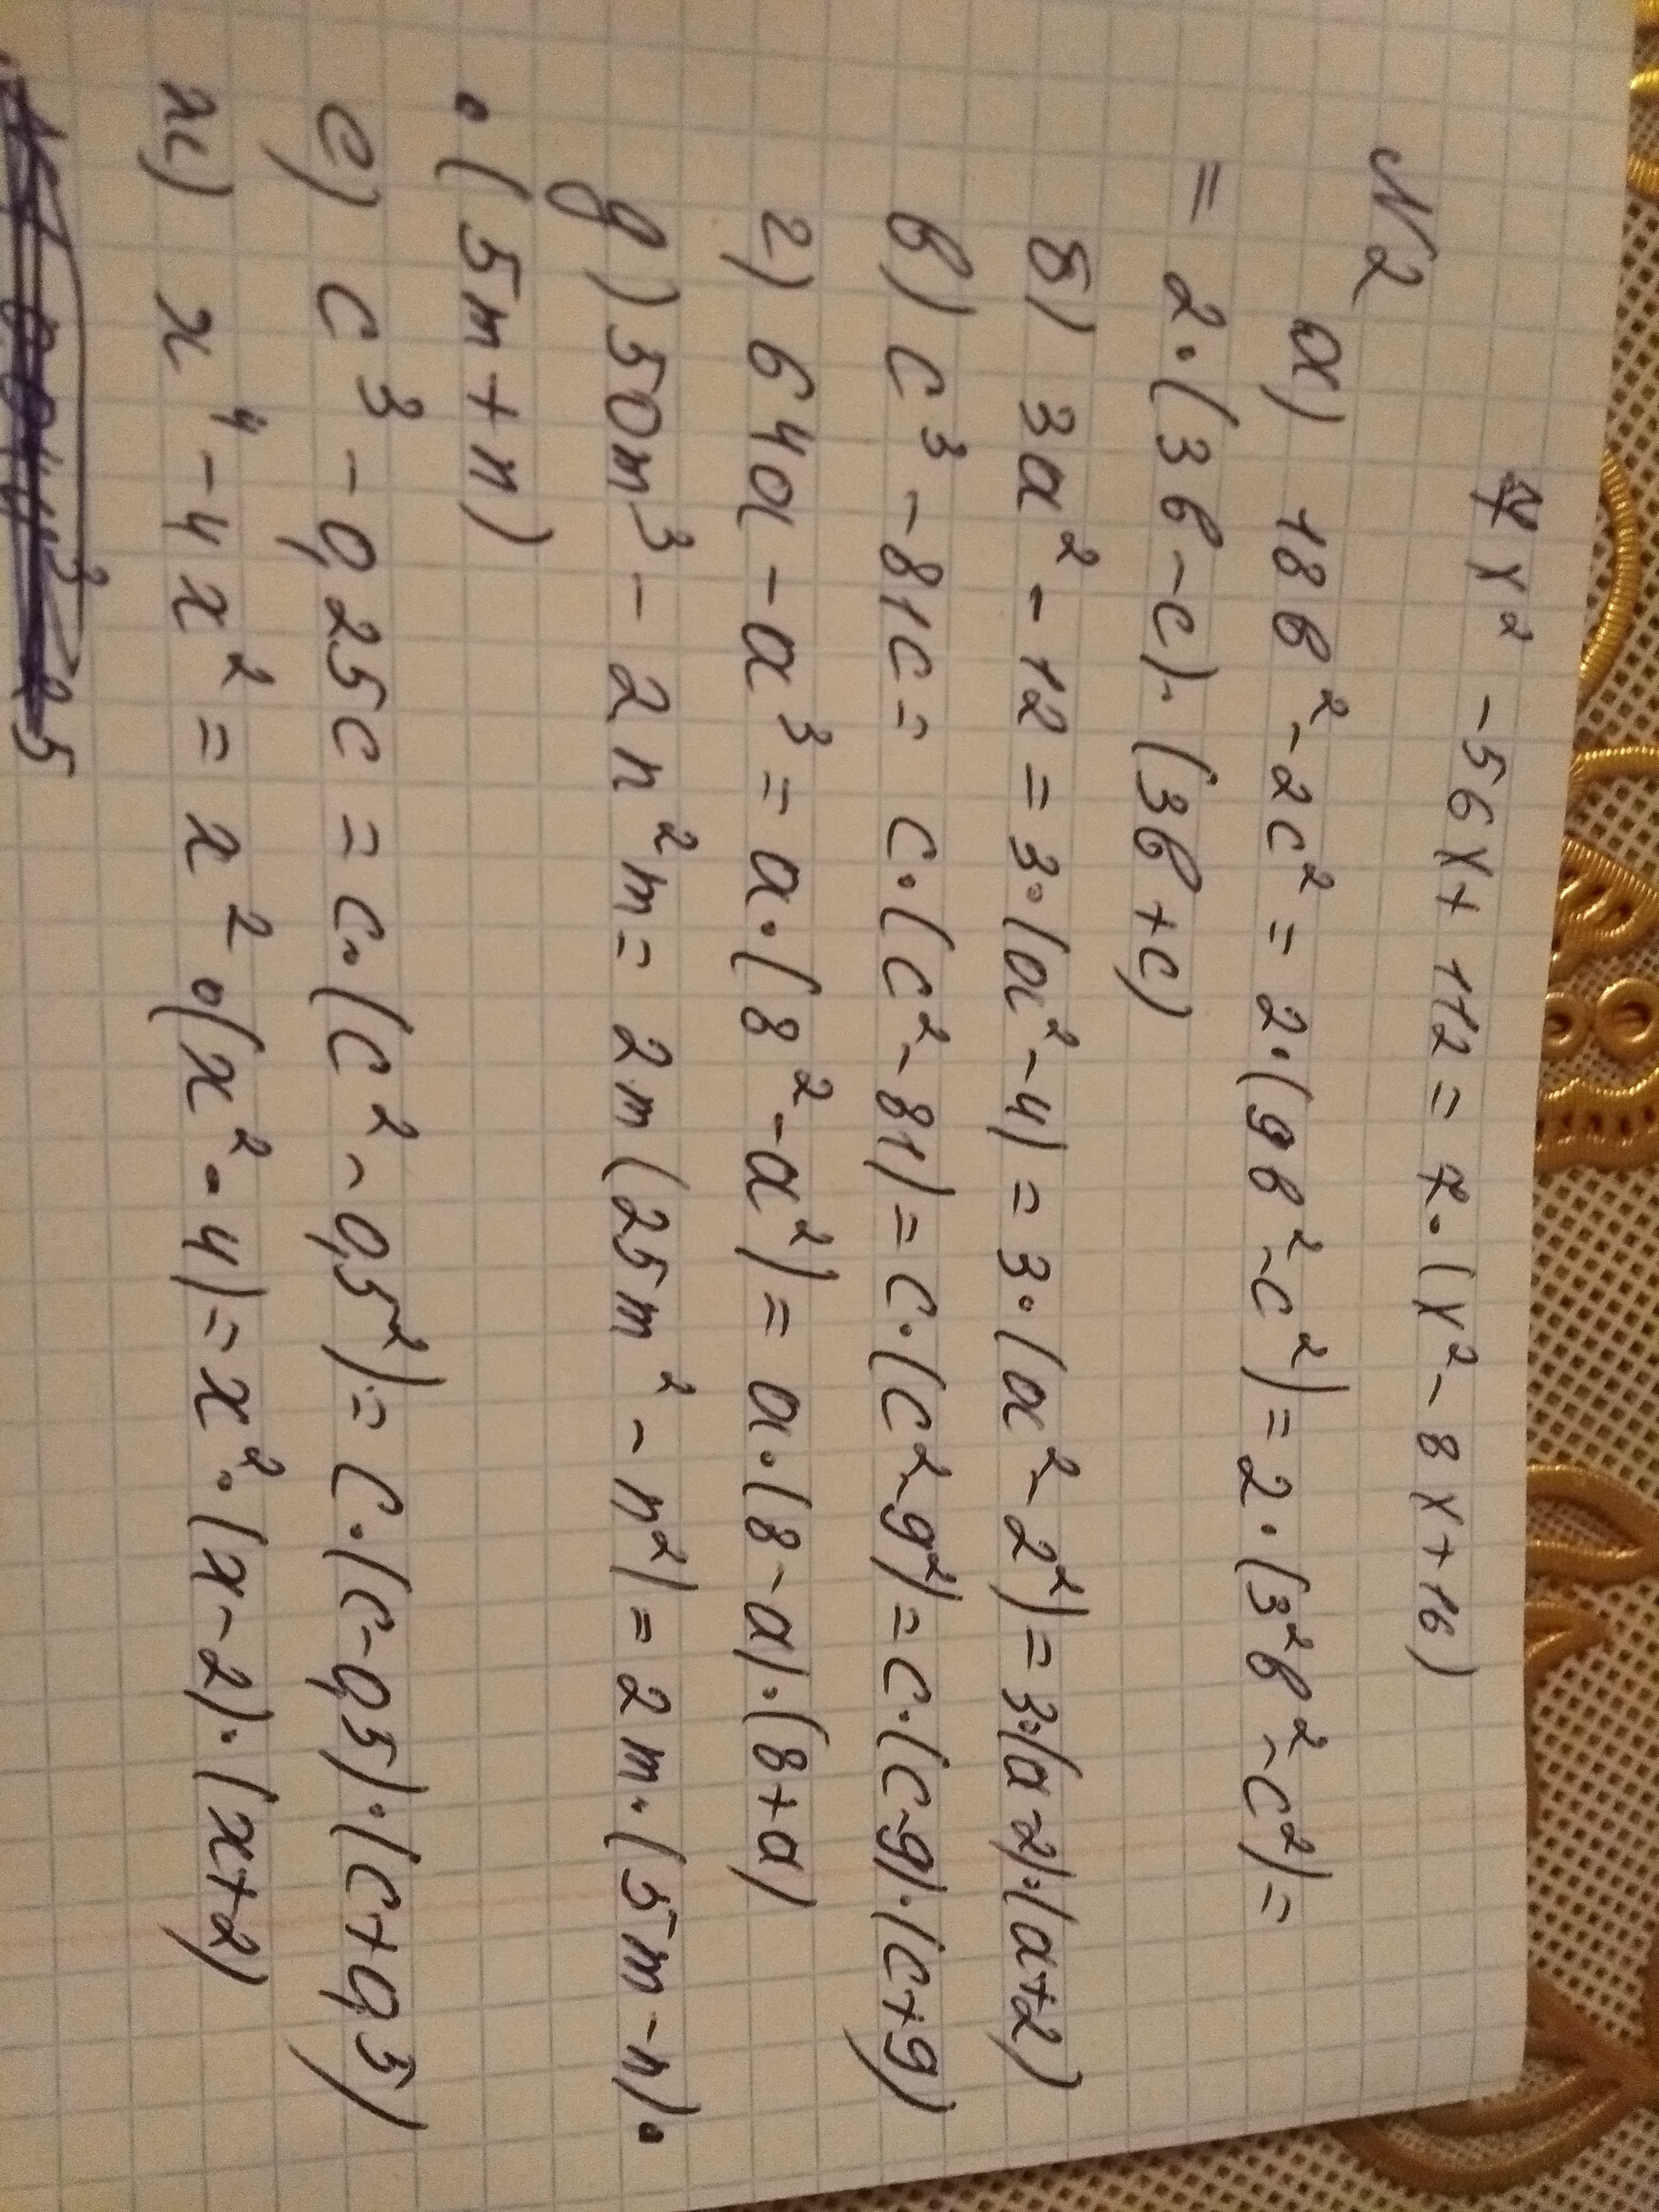 7y² - 56y + 112 = 7·(y² - 8y + 16)
N2
а) 18b² - 2c² = 2·(9b² - c²) = 2·(3²b² - c²) =
= 2·(3b - c)·(3b + c)
б) 3a² - 12 = 3·(a² - 4) = 3·(a² - 2²) = 3·(a-2)·(a+2)
в) c³ - 81c = c·(c² - 81) = c·(c² - 9²) = c·(c-9)·(c+9)
г) 64a - a³ = a·(8² - a²) = a·(8 - a)·(8 + a)
д) 50m³ - 2n²m = 2m(25m² - n²) = 2m·(5m - n)·
·(5m + n)
е) c³ - 0,25c = c·(c² - 0,5²) = c·(c - 0,5)·(c + 0,5)
ж) x⁴ - 4x² = x²·(x² - 4) = x²·(x - 2)·(x + 2)